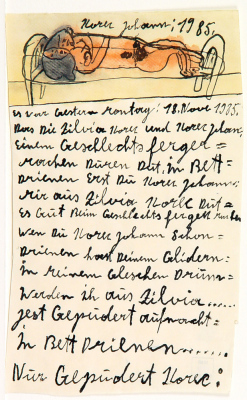 Korec Johann: 1985.
Es war Gestern Montag: 18. Nove 1985.
Das Die Zilvia Korec und Korec Johan:
Einem Geschlechts ferger=
rachen Düren Dut, in Bett=
Drienen Erst Du Korec Johann:
Mir aus Zilvia Korec Dut=
Es Gut Beim Geschlechts fergett
Wen Du Korec Johann Schon=
Drienen hast Deinem Glidern:
In meinem
Werden ih aus Zilvia.....
jest Gepudert aufmacht=
in Bett Drienen......
Nur Gepudert Korec: